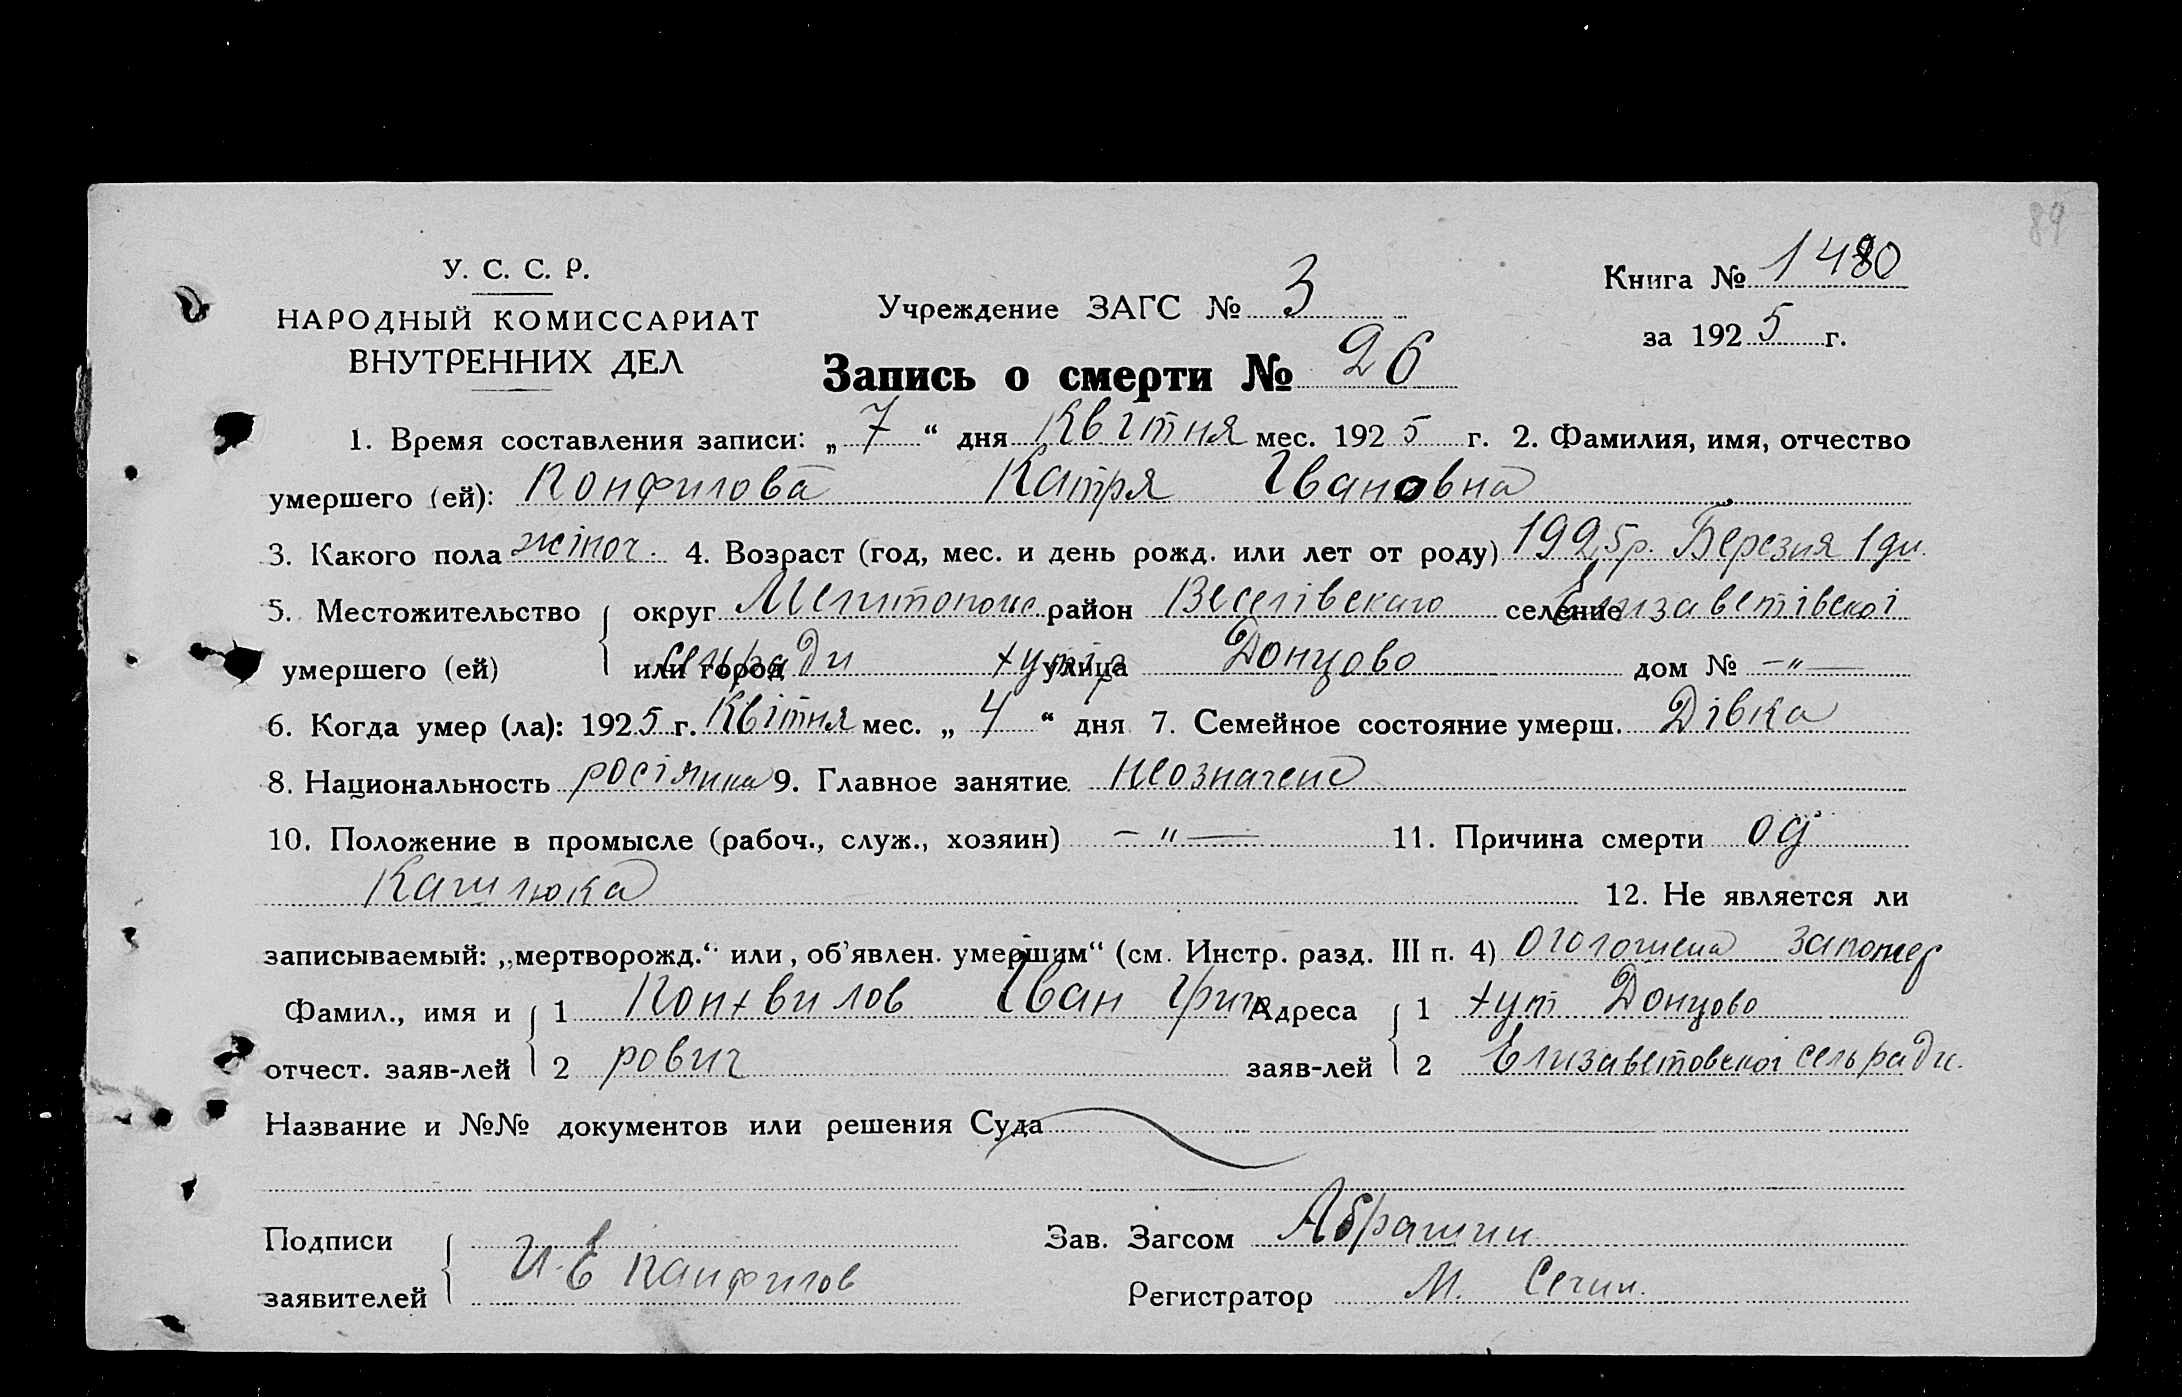 89
У. С. С. Р.
НАРОДНЫЙ КОМИССАРИАТ
ВНУТРЕННИХ ДЕЛ
Учреждение ЗАГС № 3
Книга № 1480
за 1925 г.
Запись о смерти № 26
1. Время составления записи: „7“ дня Квітня мес. 1925 г. 2. Фамилия, имя, отчество
умершего (ей): Конфилова Катря Івановна
3. Какого пола жіноч. 4. Возраст (год, мес. и день рожд. или лет от роду) 1925р. Березня 1 дн.
5. Местожительство умершего (ей) округ Мелитопольс район Веселівскаго селение Елизаветівскоі
или город сельради хутір улица Донцово дом № —„—
6. Когда умер (ла): 1925 г. Квітня мес. „4“ дня 7. Семейное состояние умерш. Дівка
8. Национальность росіянка 9. Главное занятие неозначено
10. Положение в промысле (рабоч., служ., хозяин) —„— 11. Причина смерти од
Кашлюка 12. Не является ли
записываемый: „мертворожд.“ или „об'явлен. умершим“ (см. Инстр. разд. III п. 4) оголошена запомер
Фамил., имя и отчест. заяв-лей 1 Конхвилов Іван Григо Адреса заяв-лей 1 хут Донцово
2 рович 2 Елизаветовскоі сельради.
Название и №№ документов или решения Суда
Подписи заявителей И. Е Канфилов
Зав. Загсом Абрашин
Регистратор М.